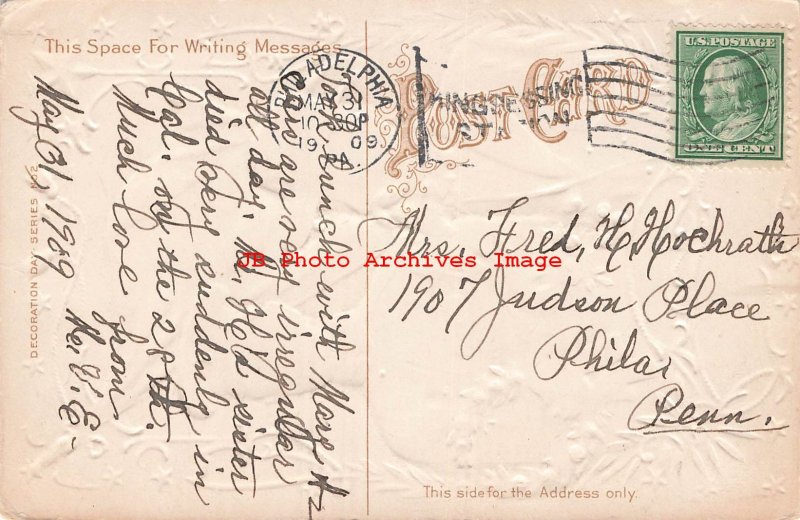 This Space For Writing Messages
Took lunch with Mary H
Cars are very irregular
all day. Mr. H's sister
died very suddenly in
Cal. on the 28th.
Much love
from
May 31, 1909
DECORATION DAY SERIES No 2
POST CARD
PHILADELPHIA
PA.
MAY 31
10 30P
1909
KINGSESSING
STATION
U.S. POSTAGE
ONE CENT
Mrs. Fred. H. Hochrath
1907 Judson Place
Phila.
Penn.
This side for the Address only.
JB Photo Archives Image